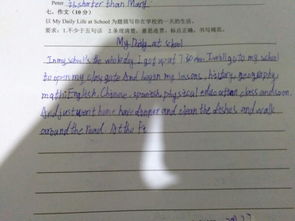 Peter is shorter than Mary.
七、作文(10分)
以 My Daily Life at School 为题描写你在学校的一天的生活。
要求：1.不少于五句话 2.条理清楚，意思连贯，标点正确，书写规范。
My Daily at school
In my school's the whole day. I got up at 7 I will go to my school
to open my class And began my lessons, history, geography
math, English, Chinese, spanish, physical education class and soon.
And just went home have danger and clean the dishes and walk
around the road. At the